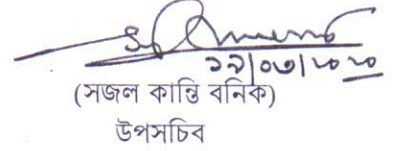 ১৯/০৩/২০২০
(সজল কান্তি বনিক)
উপসচিব